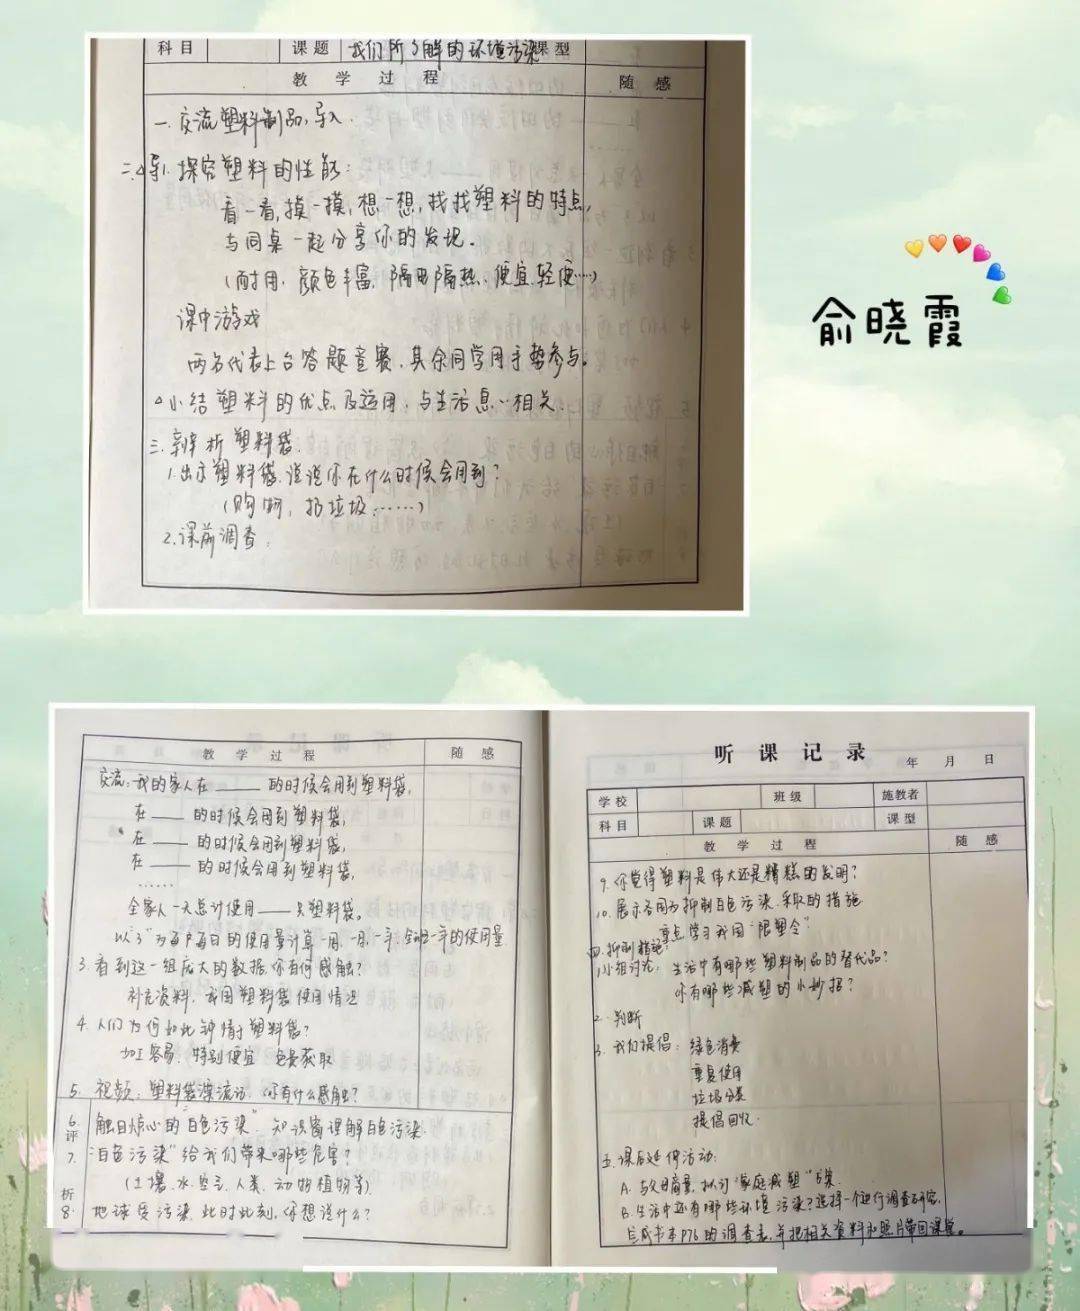 科目 课题 我们所了解的环境污染 课型
教学过程 随感
一. 交流塑料制品,导入.
二.△导1. 探究塑料的性能:
看一看,摸一摸,想一想,找找塑料的特点,
与同桌一起分享你的发现.
(耐用.颜色丰富,隔电隔热.便宜.轻便…)
课中游戏
两名代表上台答题竞赛,其余同学用手势参与。
△小结塑料的优点及运用,与生活息息相关.
三.辨析塑料袋.
1.出示塑料袋.说说你在什么时候会用到?
(购物,扔垃圾……)
2.课前调查:
俞晓霞
教学过程 随感
交流:我的家人在____的时候会用到塑料袋,
在____的时候会用到塑料袋,
在____的时候会用到塑料袋,
在____的时候会用到塑料袋,
……
全家人一天总计使用____只塑料袋。
以"3"为每户每日的使用量计算一周,一月,一年,全班一年的使用量
3.看到这一组庞大的数据.你有何感触?
补充资料,我国塑料袋使用情况
4.人们为何如此钟情于塑料袋?
加工容易,特别便宜 免费获取
5.视频:塑料袋漂流记.你有什么感触?
6.触目惊心的"白色污染".知识窗理解白色污染.
评
7."白色污染"给我们带来哪些危害?
(土壤.水.空气.人类.动物植物等)
析
8.地球受污染.此时此刻,你想说什么?
听课记录
年 月 日
学校 班级 施教者
科目 课题 课型
教学过程 随感
9.你觉得塑料是伟大还是糟糕的发明?
10.展示各国为抑制白色污染.采取的措施
重点学习我国"限塑令"
四.抑制措施:
1.小组讨论:生活中有哪些塑料制品的替代品?
你有哪些减塑的小妙招?
2.判断
3.我们提倡:绿色消费
重复使用
垃圾分类
提倡回收.
五.课后延伸活动:
A.与父母商量,拟订"家庭减塑"方案.
B.生活中还有哪些环境污染?选择一个进行调查研究,
完成书本P76的调查表,并把相关资料和照片带回课堂。